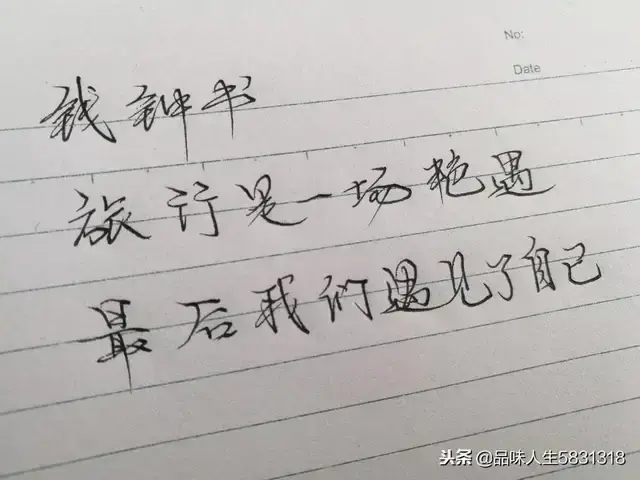 No:
Date
钱钟书
旅行是一场艳遇
最后我们遇见了自己
头条 @品味人生5831318